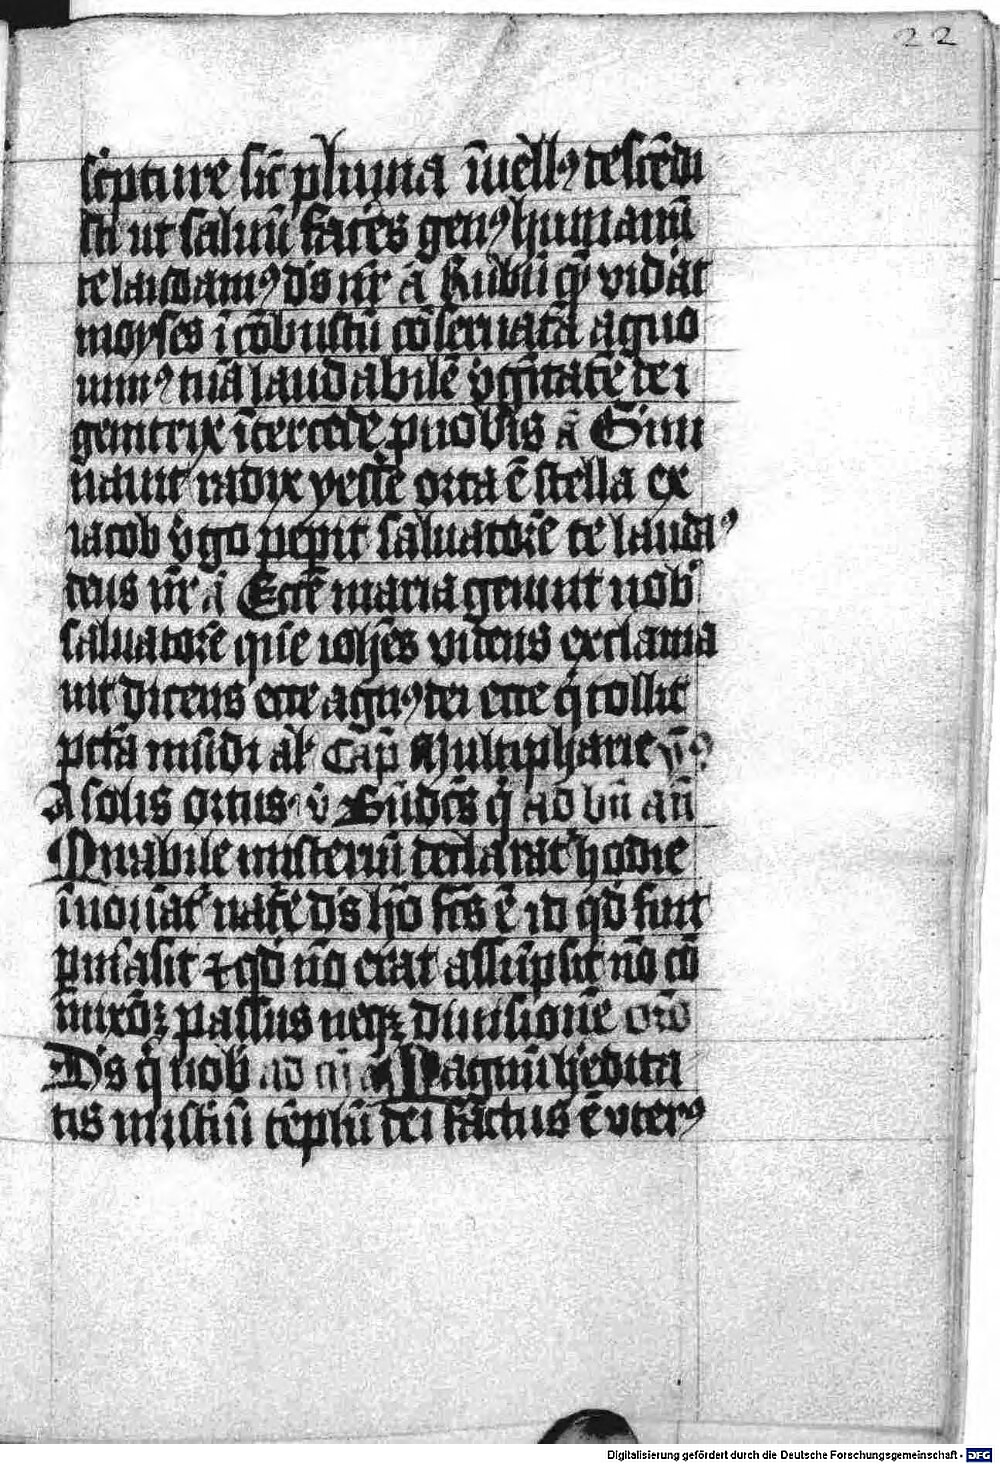 22
sc̄pture sic̄ pluuia ī uell9 descēdi
sti ut saluū faceēs gen9 humanū
te laudam9 ds̄ nr̄ ā Rubū quē viderat
moyses īcōbustū cōseruatā agno
uim9 tuā laudabilē v̓gītatē dei
genitrix īt̓cede p nobis ā Germi
nauit radix yesse orta ē stella ex
iacob v̓go pep̄it saluatorē te lauda9
deus nr̄ ā Ecce maria genuit nob̓
saluatorē quē ioh̄es videns exclama
uit dicens ecce agn9 dei ecce q̓ tollit
pctā mūdi al̓l Cap̄ Multipharie ym̄9
A solis ortus v̓ Bn̄dc̄s q̓ ad bn̄ an̄
Mirabile misteriū declarat̓ hodie
īnouāt̓ nat̓e ds̄ hō fcs̄ ē id qd̓ fuit
pmāsit ⁊ qd̓ nō erat assūpsit nō cō
mixōꝫ passus neqꝫ diuisionē orō
Ds̄ q̓ nob̓ ad Magnū h̓edita
tis mistiū tēplū dei factus ē vter9
Digitalisierung gefördert durch die Deutsche Forschungsgemeinschaft - DFG